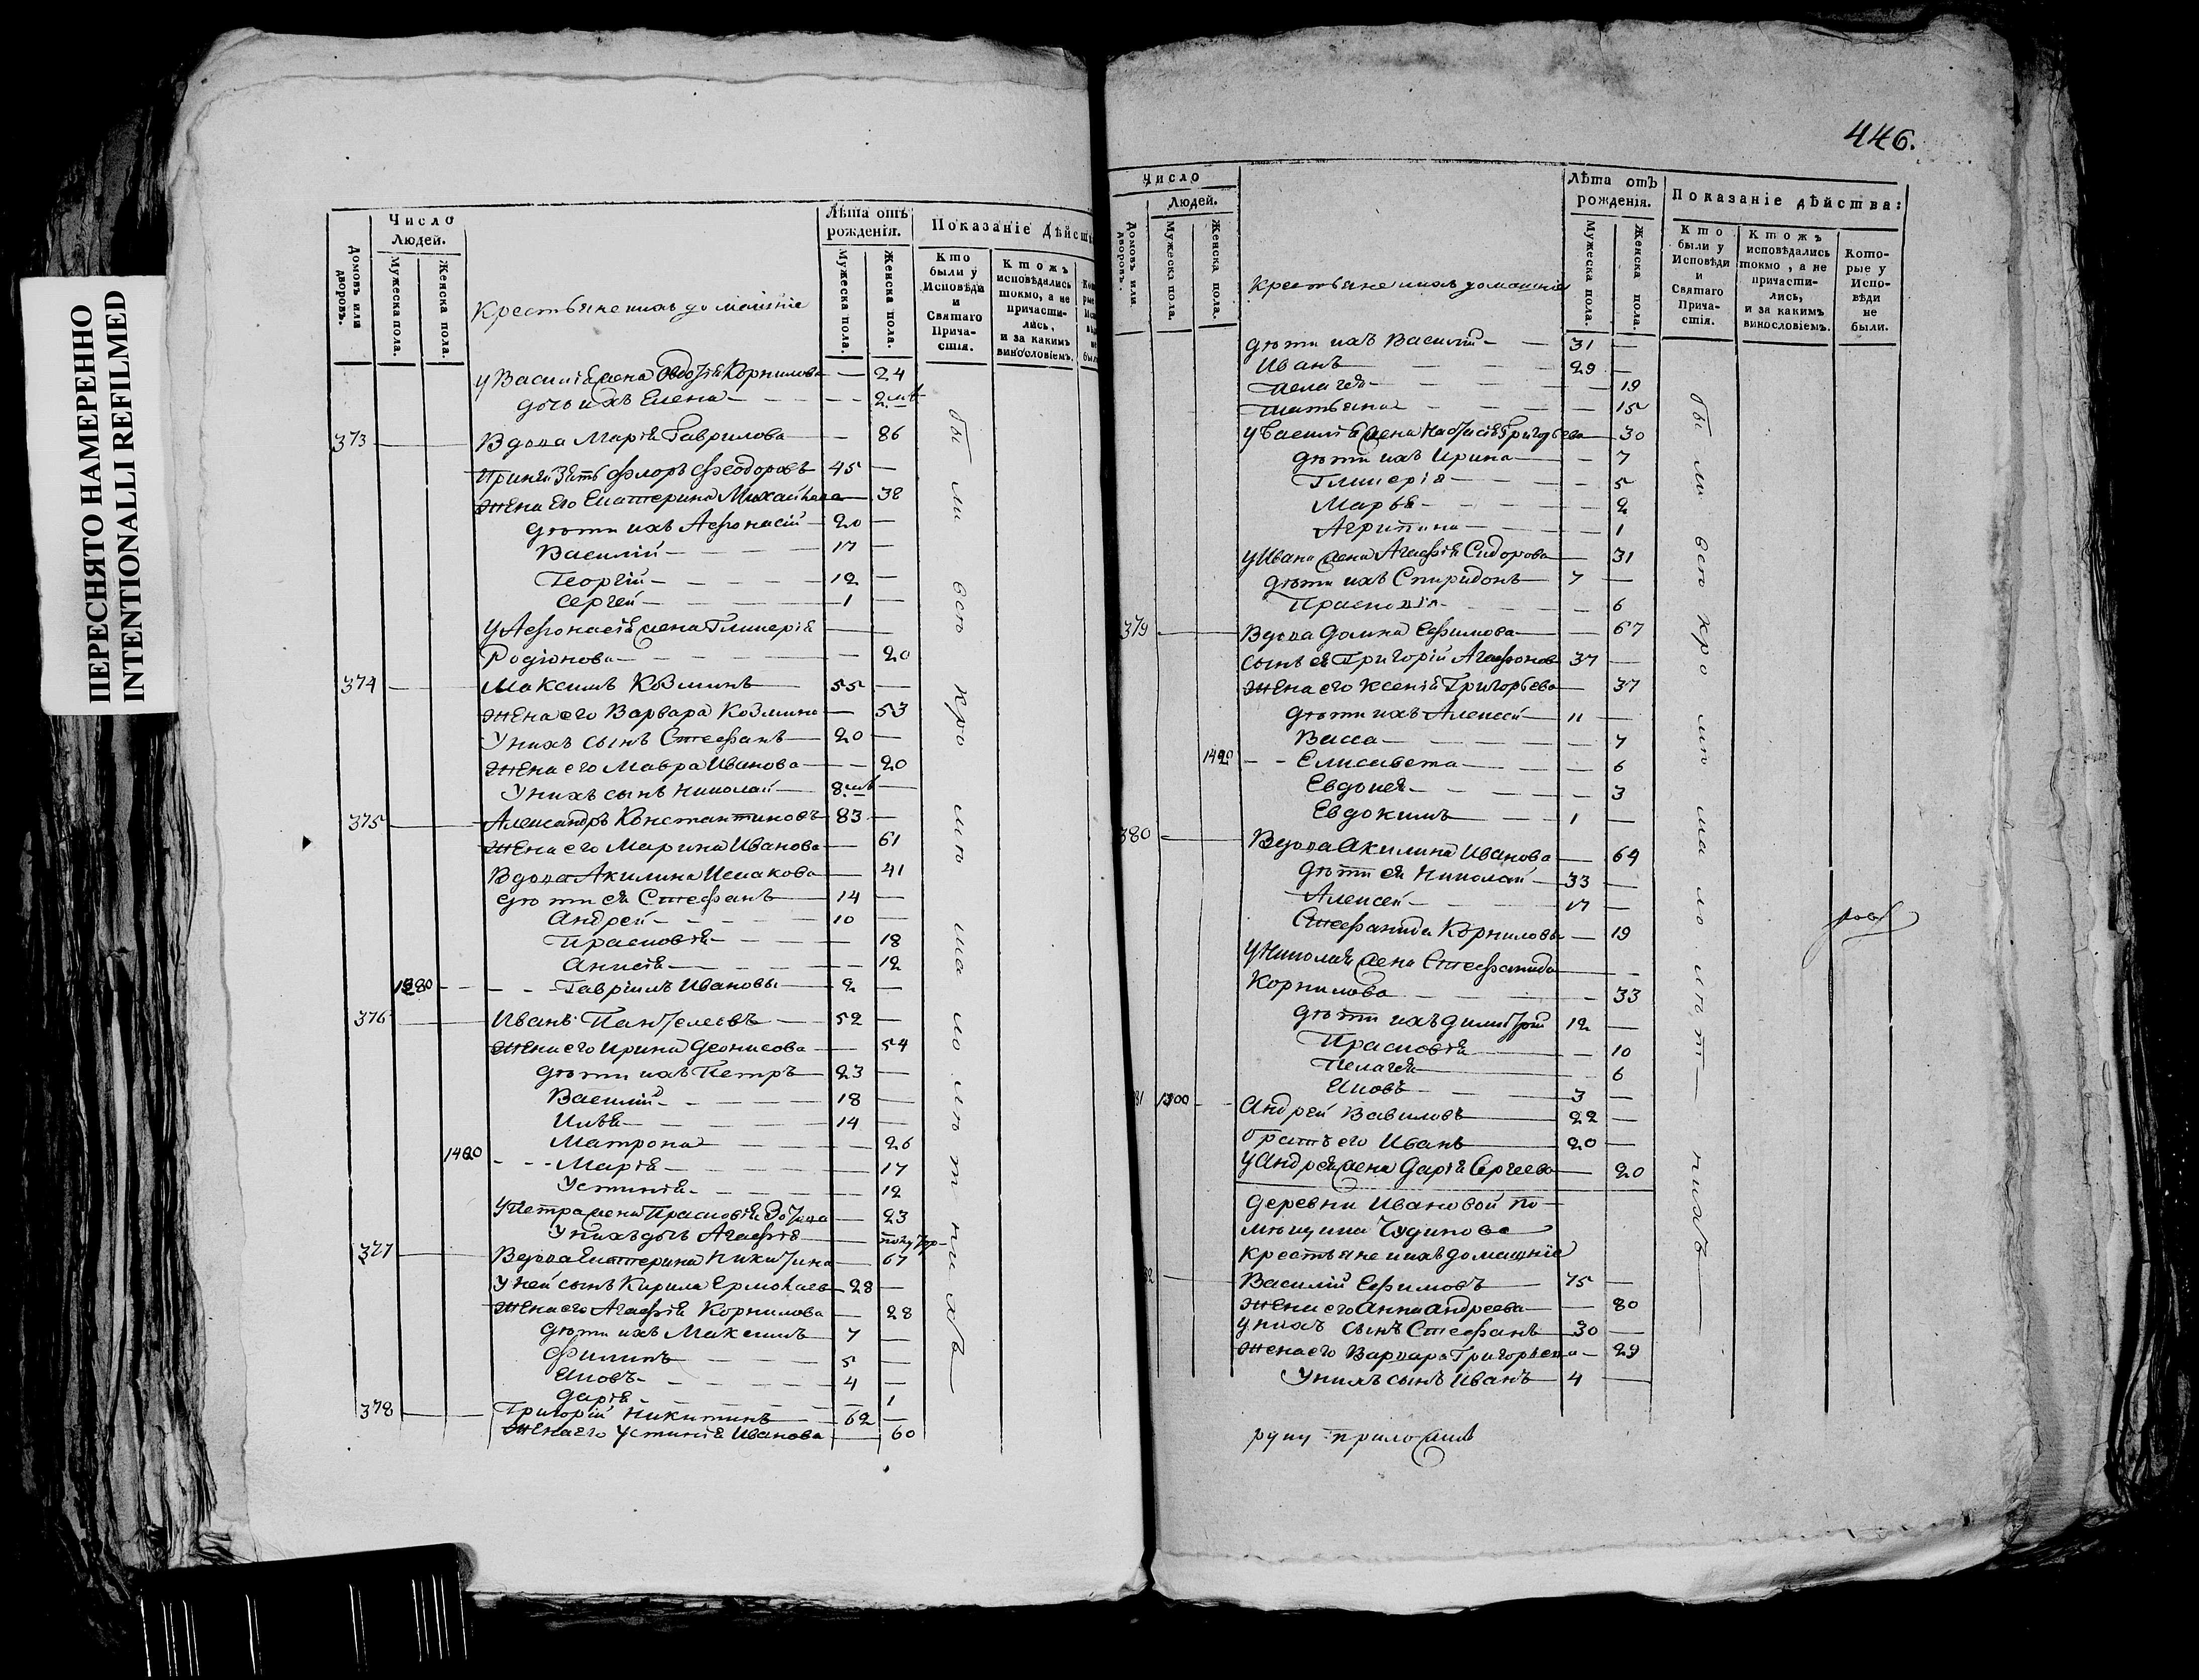 ПЕРЕСНЯТО НАМЕРЕННО
INTENTIONALLI REFILMED
Число
Людей.
Домовъ или дворовъ.
Мужеска пола.
Женска пола.
Крестьяне и ихъ домашніе
Лѣта отъ рожденія.
Мужеска пола.
Женска пола.
Показаніе Дѣйст
Кто были у Исповѣди и Святаго Причастія.
Ктожъ исповѣдались токмо, а не причастились, и за какимъ винословіемъ.
у Василія жена Овдотья Корнилова — 24
дочь ихъ Елена — 2 мѣ
373 Вдова Марія Гаврилова — 86
Зять Флоръ Феодоровъ 45 —
Жена его Екатерина Михайлова — 38
дѣти ихъ Афонасій 20 —
Василій 17 —
Георгій 12 —
Сергей 1 —
у Афонасія жена Гликерія
Родіонова — 20
374 Максимъ Козминъ 55 —
Жена его Варвара Козмина — 53
У нихъ сынъ Стефанъ 20 —
Жена его Мавра Иванова — 20
У нихъ сынъ Николай 8 мѣ —
375 Александръ Константиновъ 83 —
Жена его Марина Иванова — 61
Вдова Акилина Исакова — 41
дѣти ея Стефанъ 14 —
Андрей 10 —
Прасковія — 18
Анисія — 12
1380 Гавріилъ Ивановы 2 —
376 Иванъ Пантелеевъ 52 —
Жена его Ирина Деонисова — 54
дѣти ихъ Петръ 23 —
Василій 18 —
Илья 14 —
Матрона — 26
1480 Марія — 17
Устинія — 12
У Петра жена Прасковія — 23
У нихъ дочь Агафія — полутор
377 Вдова Екатерина Никитина — 67
У ней сынъ Кирила Ермолаев 28 —
Жена его Агафія Корнилова — 28
дѣти ихъ Максимъ 7 —
Филипъ 5 —
Іаковъ 4 —
Дарія — 1
378 Григорій Никитинъ 62 —
Жена его Устинія Иванова — 60
бы ли всѣ кро мѣ ма ло лѣ т нихъ
446.
Число
Людей.
Домовъ или дворовъ.
Мужеска пола.
Женска пола.
Крестьяне и ихъ домашніе
Лѣта отъ рожденія.
Мужеска пола.
Женска пола.
Показаніе дѣйства:
Кто были у Исповѣди и Святаго Причастія.
Ктожъ исповѣдались токмо, а не причастились, и за какимъ винословіемъ.
Которые у Исповѣди не были.
дѣти ихъ Василій 31 —
Иванъ 29 —
Пелагея — 19
Татьяна — 15
у Василія жена Настасія Григорьева — 30
дѣти ихъ Ирина — 7
Гликерія — 5
Марья — 2
Агрипина — 1
у Ивана жена Агафія Сидорова — 31
дѣти ихъ Спиридонъ 7 —
Прасковія — 6
379 Вдова Домна Ефимова — 67
Сынъ ея Григорій Агафонов 37 —
Жена его Ксенія Григорьева — 37
дѣти ихъ Алексей 11 —
Васса — 7
Елисавета — 6
Евдокея — 3
Евдокимъ 1 —
380 Вдова Акилина Иванова — 64
дѣти ея Николай 33 —
Алексей 17 —
Стефанида Корниловы — 19
У Николая жена Стефанида
Корнилова — 33
дѣти ихъ Димитрій 12 —
Прасковія — 10
Пелагея — 6
Іаковъ 3 —
81 Андрей Вавиловъ 22 —
братъ его Иванъ 20 —
у Андрея жена Дарія Сергеева — 20
Деревни Ивановой по-
мѣщика Чудинова
Крестьяне и ихъ домашніе
2 Василій Ефимовъ 75 —
Жена его Анна Андреева — 80
у нихъ сынъ Стефанъ 30 —
Жена его Варвара Григорьева — 29
У нихъ сынъ Иванъ 4 —
бы ли всѣ кро мѣ ма ло лѣ т нихъ
руку приложилъ